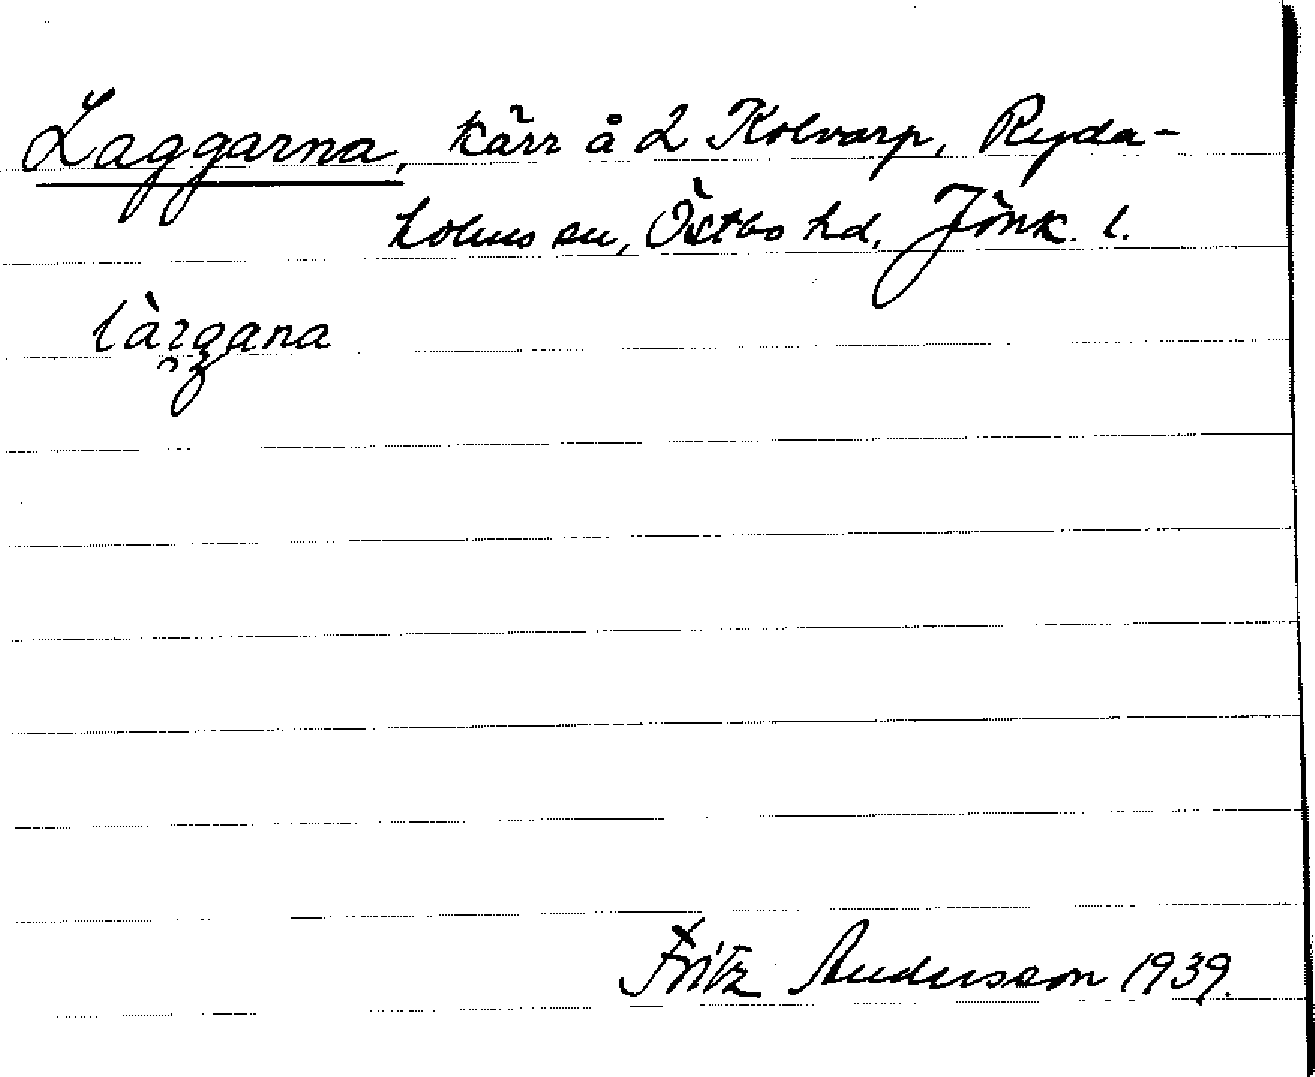 Laggarna, kärr å 2 Kolvarp, Ryda-
holms sn, Östbo hd, Jönk. l.
Fritz Andersson 1939.